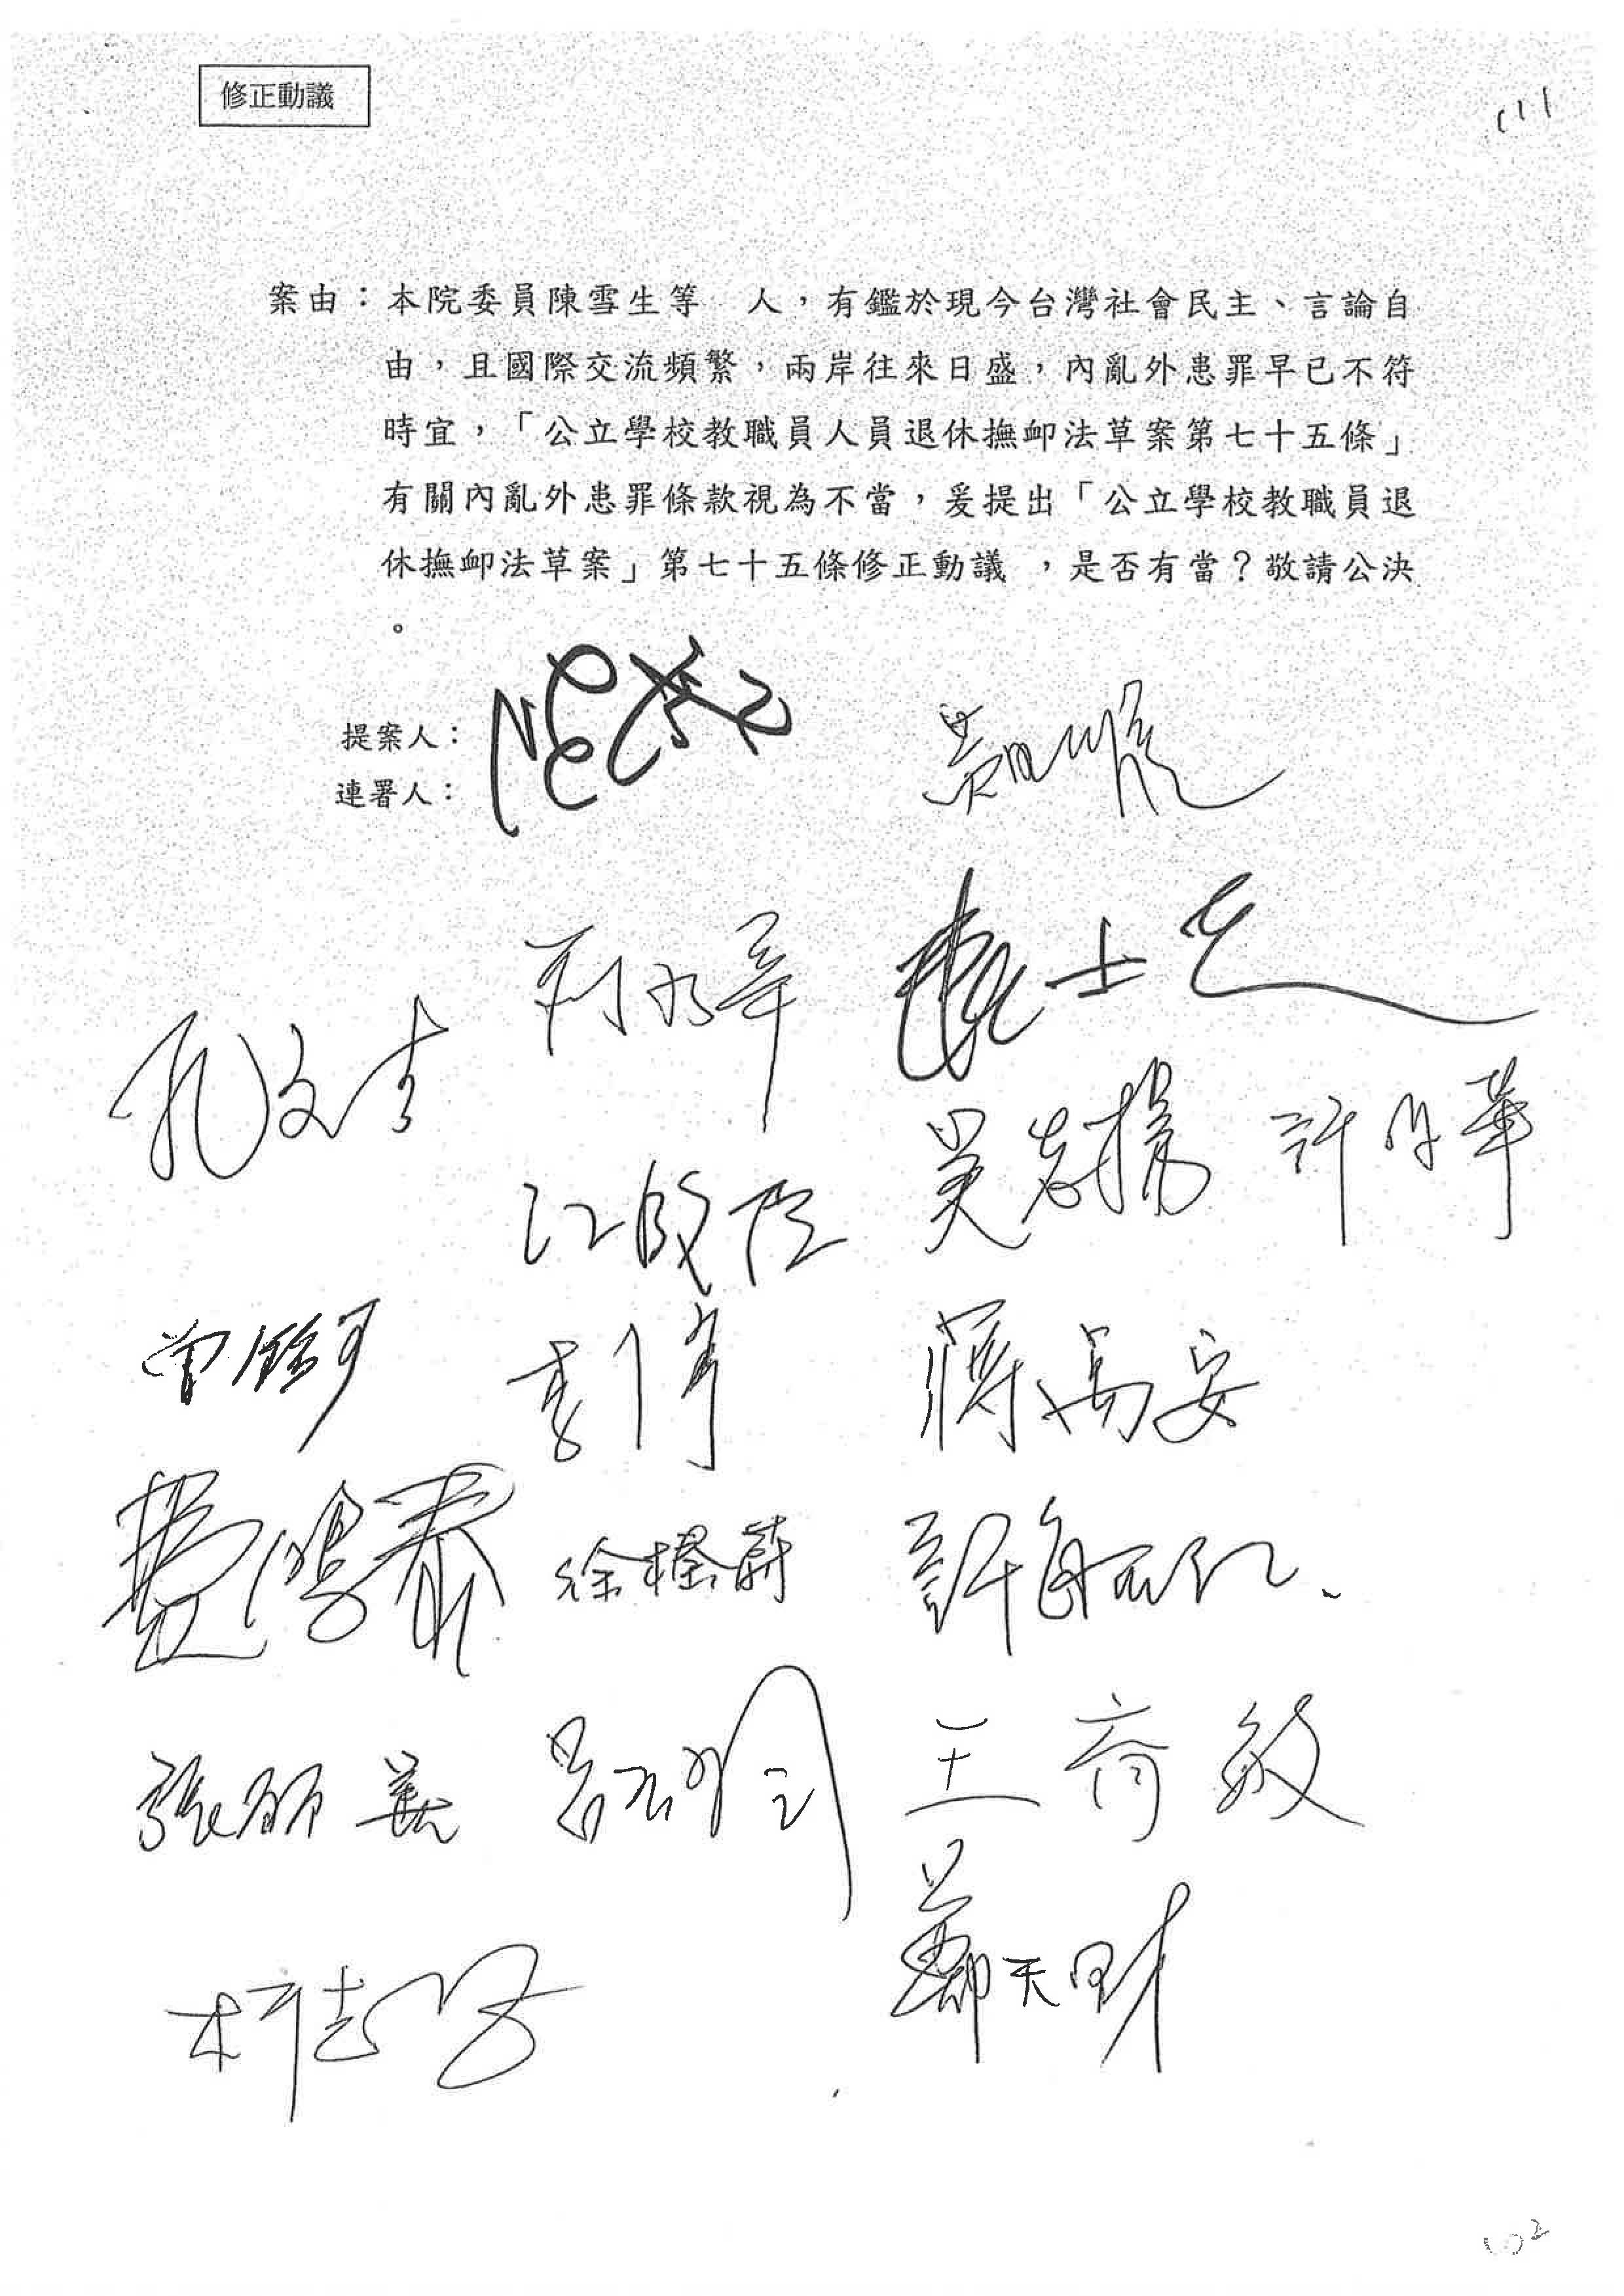 修正動議
111
案由：本院委員陳雪生等 人，有鑑於現今台灣社會民主、言論自
由，且國際交流頻繁，兩岸往來日盛，內亂外患罪早已不符
時宜，「公立學校教職員人員退休撫卹法草案第七十五條」
有關內亂外患罪條款視為不當，爰提出「公立學校教職員退
休撫卹法草案」第七十五條修正動議 ，是否有當？敬請公決
。
提案人：
連署人：
孔文吉
江啟臣
吳志揚
曾銘宗
蔣萬安
費鴻泰
徐榛蔚
張麗善
王育敏
鄭天財
柯志恩
102